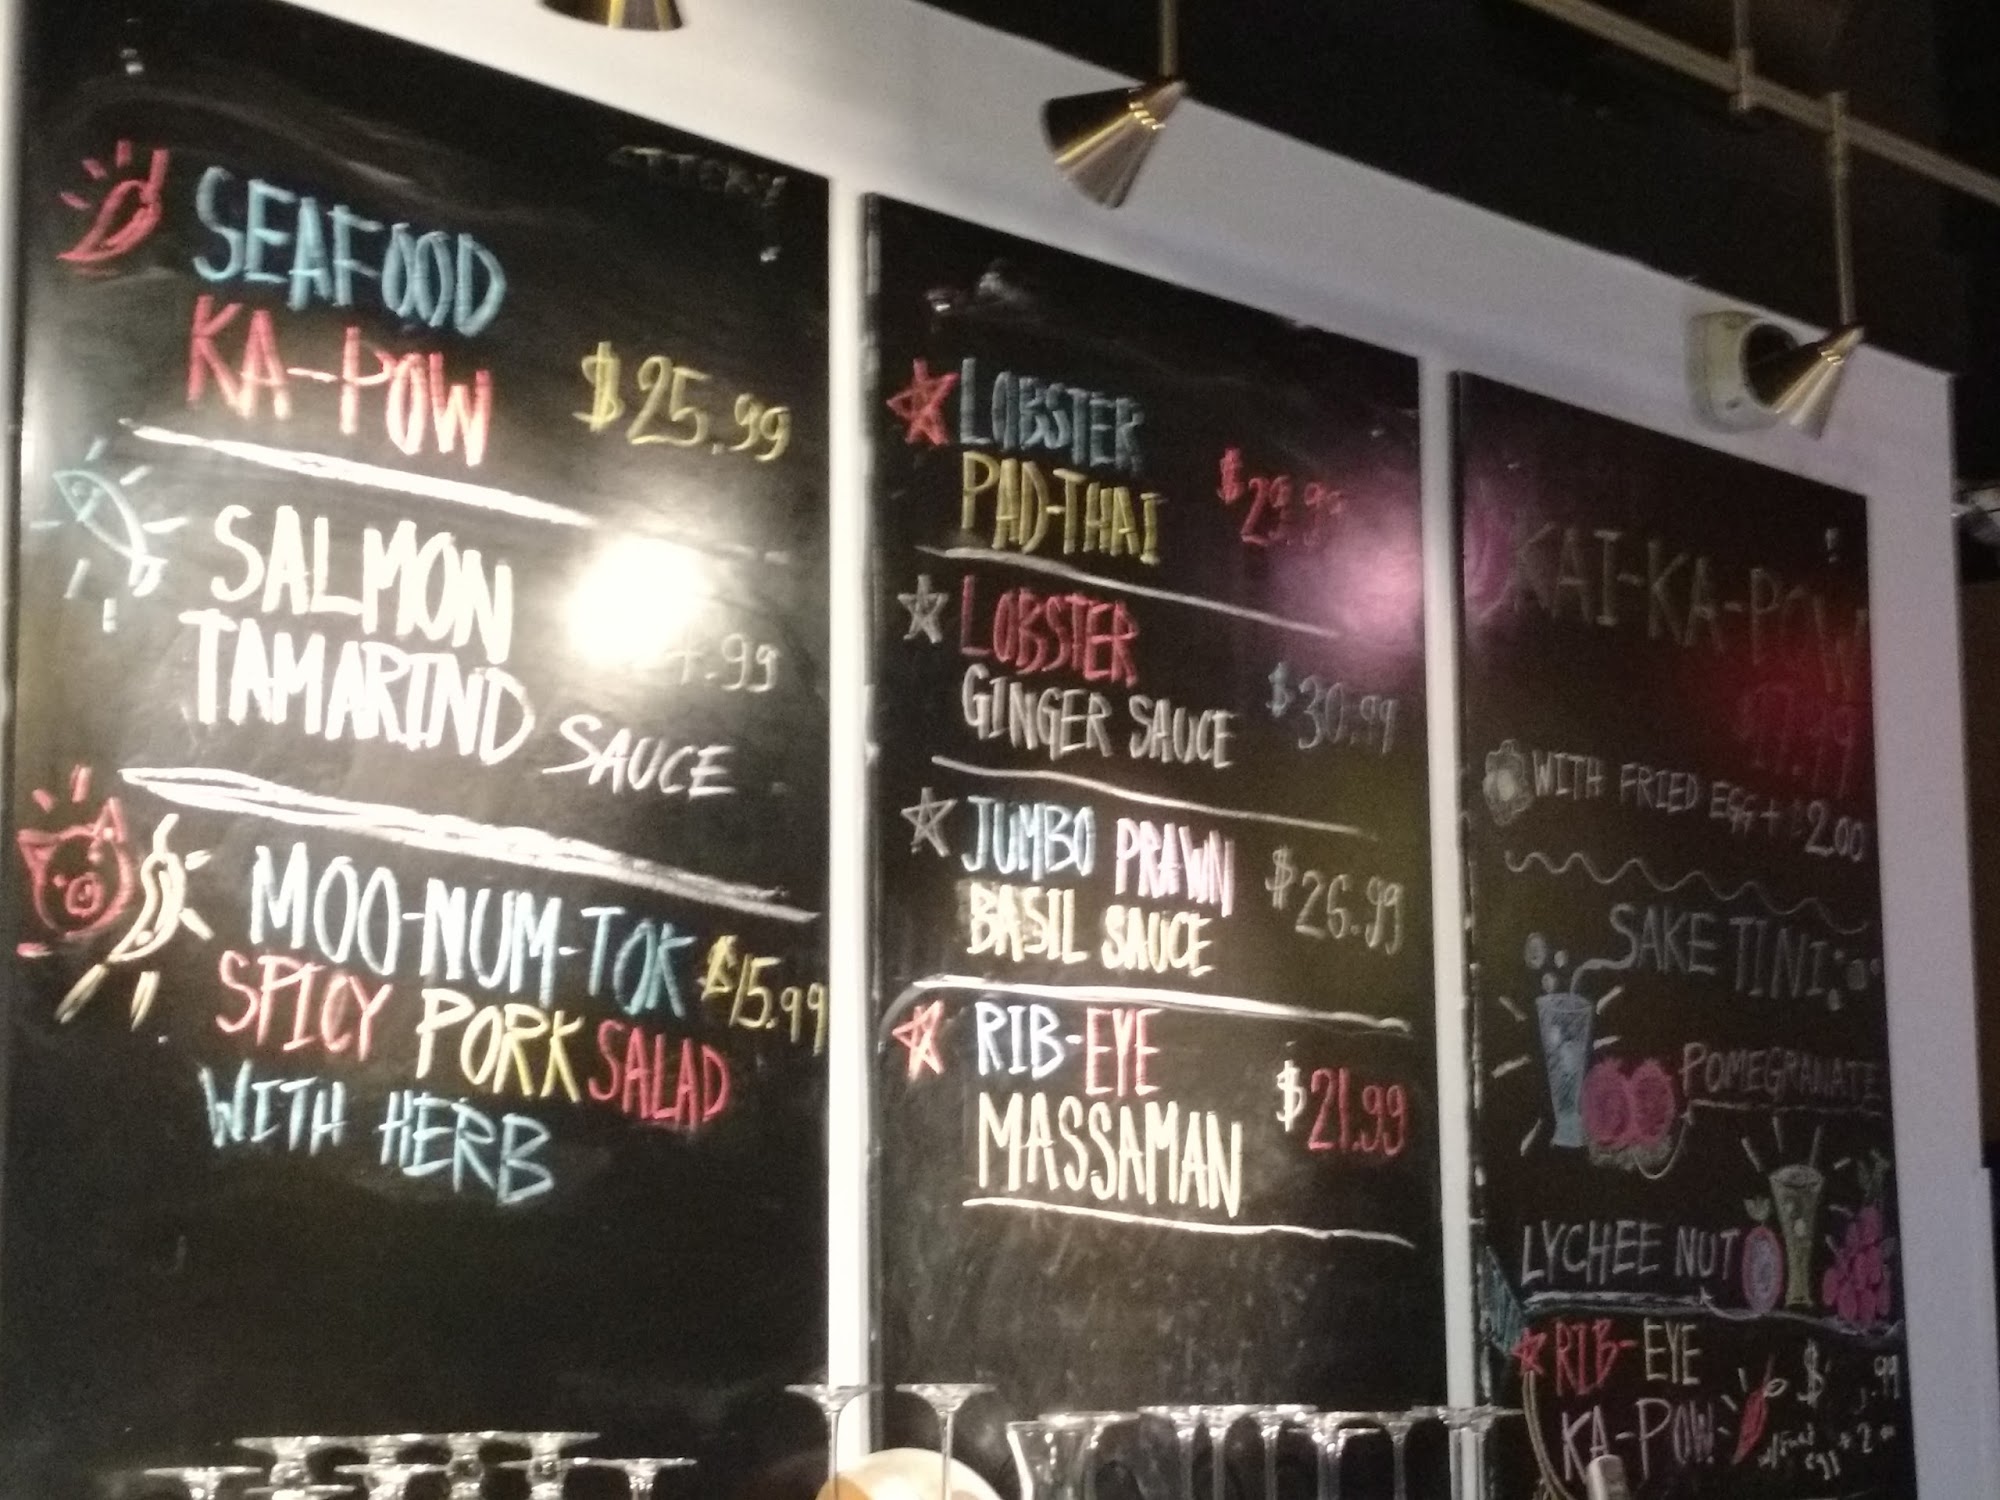 SEAFOOD
KA-POW $25.99
SALMON
TAMARIND SAUCE
MOO-NUM-TOK $15.99
SPICY PORK SALAD
WITH HERB
LOBSTER
PAD-THAI $29.99
LOBSTER
GINGER SAUCE $30.99
JUMBO PRAWN
BASIL SAUCE $26.99
RIB-EYE
MASSAMAN $21.99
KAI-KA-POW
WITH FRIED EGG + $2.00
SAKE TINI
POMEGRANATE
LYCHEE NUT
RIB-EYE
KA-POW